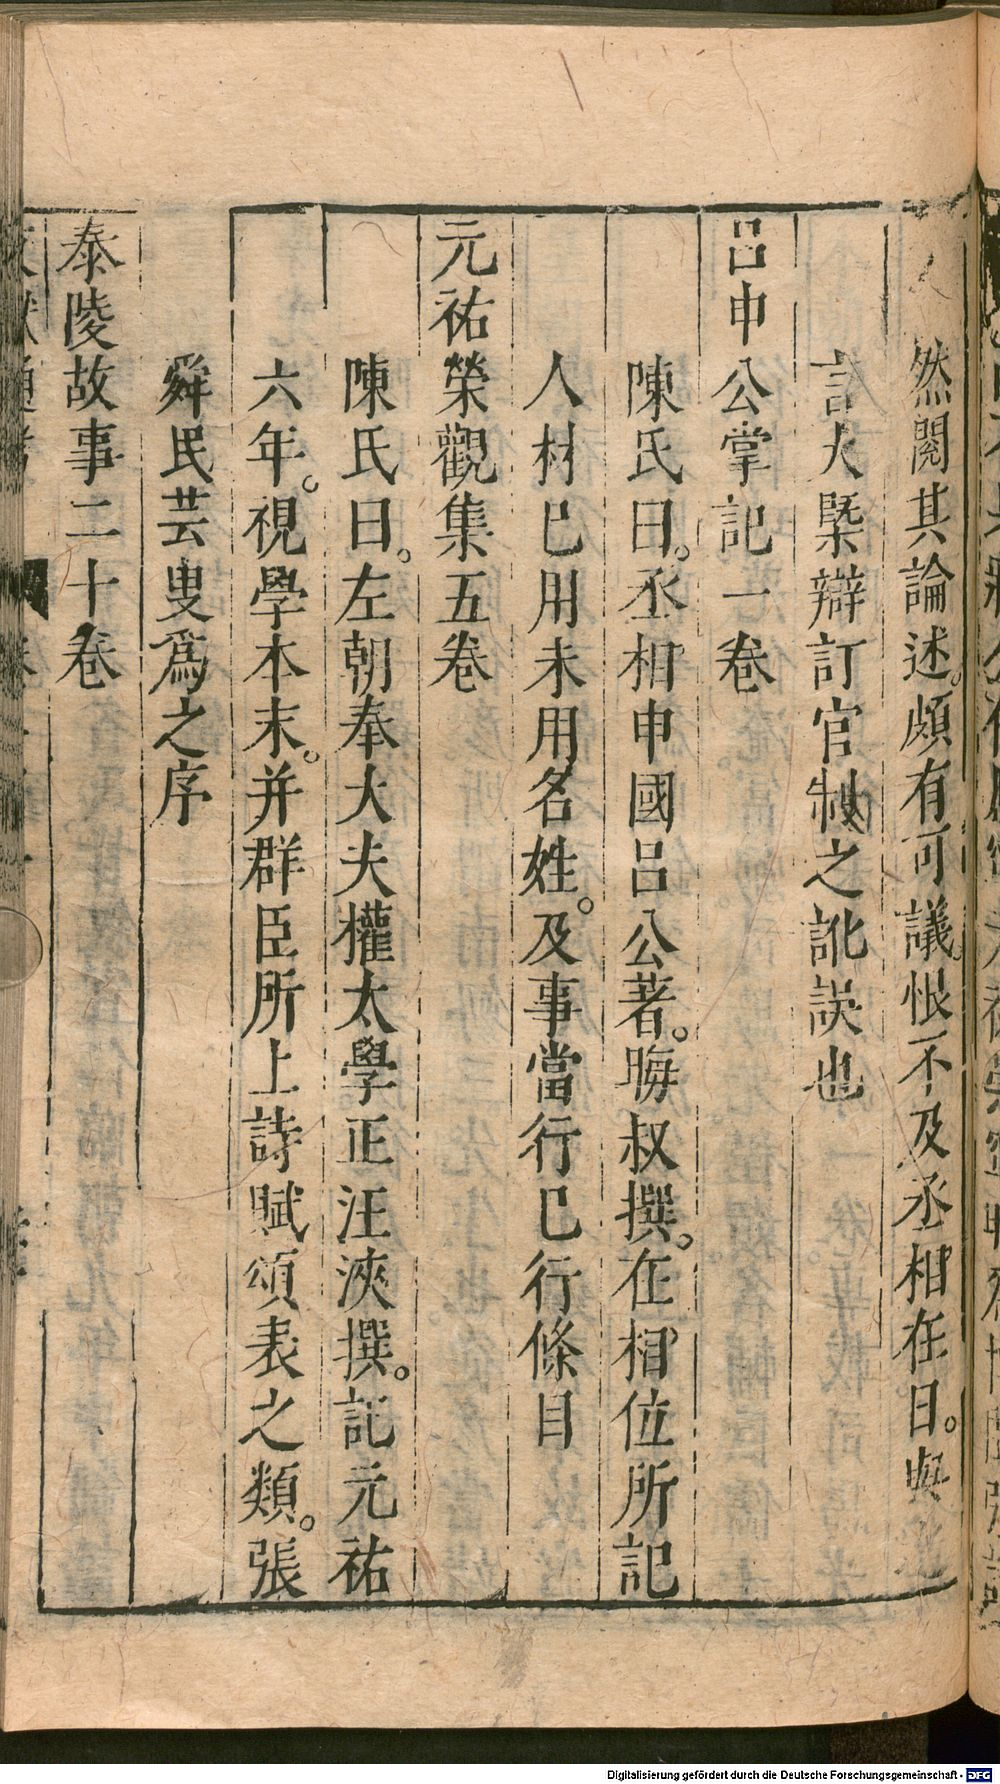 然閱其論述。頗有可議。恨不及丞相在日。與
言大槩辯訂官制之訛誤也
呂申公掌記一卷
陳氏曰。丞相申國呂公著。晦叔撰。在相位所記
人材已用未用名姓。及事當行已行條目
元祐榮觀集五卷
陳氏曰。左朝奉大夫權太學正汪浹撰。記元祐
六年。視學本末。并群臣所上詩賦頌表之類。張
舜民芸叟爲之序
泰陵故事二十卷
Digitalisierung gefördert durch die Deutsche Forschungsgemeinschaft - DFG